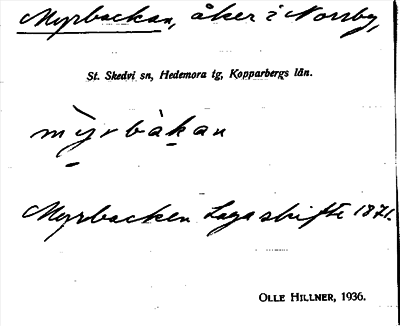 Myrbackan, åker i Norrby,
St. Skedvi sn, Hedemora tg, Kopparbergs län.
mỳrbàkan
Myrbacken Laga skifte 1871.
OLLE HILLNER, 1936.